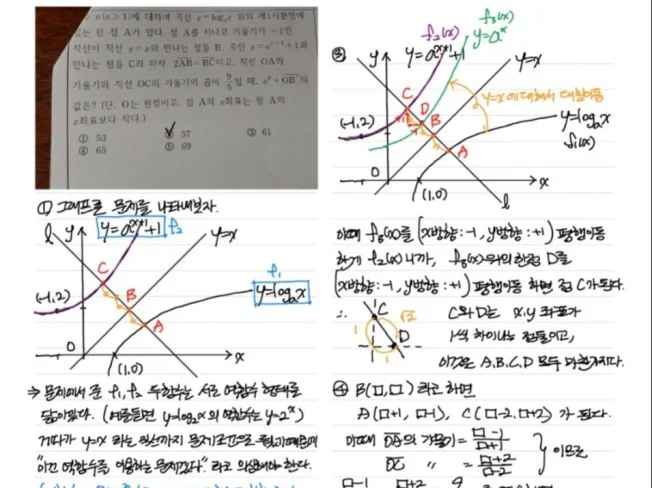 a(a>1)에 대하여 곡선 y=logₐx 위의 제1사분면에
있는 한 점 A가 있다. 점 A를 지나고 기울기가 -1인
직선이 직선 y=x와 만나는 점을 B, 곡선 y=aˣ⁺¹+1과
만나는 점을 C라 하자. 2AB=BC이고, 직선 OA의
기울기와 직선 OC의 기울기의 곱이 9/5일 때, a⁶+OB²의
값은? (단, O는 원점이고, 점 A의 x좌표는 점 A의
y좌표보다 작다.)
① 53
57
③ 61
④ 65
⑤ 69
① 그래프로 문제를 나타내보자.
l
y
y=aˣ⁺¹+1
f₂
y=x
C
(-1,2)
B
A
f₁
y=logₐx
O
(1,0)
x
⇒ 문제에서 준 f₁, f₂ 두함수는 서로 역함수 형태를
닮아있다. (예를들면 y=log₂x의 역함수는 y=2ˣ)
거다가 y=x 라는 직선까지 문제
"이건 역함수를 이용하는 문제겠다" 라고 의심해야 한다.
③
f₂(x)
f₃(x)
y
y=aˣ⁺¹+1
y=aˣ
y=x
y=x에 대해서 대칭이동
C
D
B
A
(-1,2)
y=logₐx
f₁(x)
O
(1,0)
x
l
이때 f₃(x)를 (x방향:-1, y방향:+1) 평행이동
하게 f₂(x) 니까, f₃(x)위의 한점 D를
(x방향:-1, y방향:+1) 평행이동 하면 점 C가 된다.
∴
C
√2
1
1
D
C와 D는 x,y 좌표가
1씩 차이나는 점들이고,
이것은 A,B,C,D 모두 마찬가지다.
④ B(□,□) 라고 하면
A(□+1, □-1), C(□-2,□+2) 가 된다.
이때 OA의 기울기 = □-1/□+1
OC 〃 = □+2/□-2
이므로
□-1 □+2 9